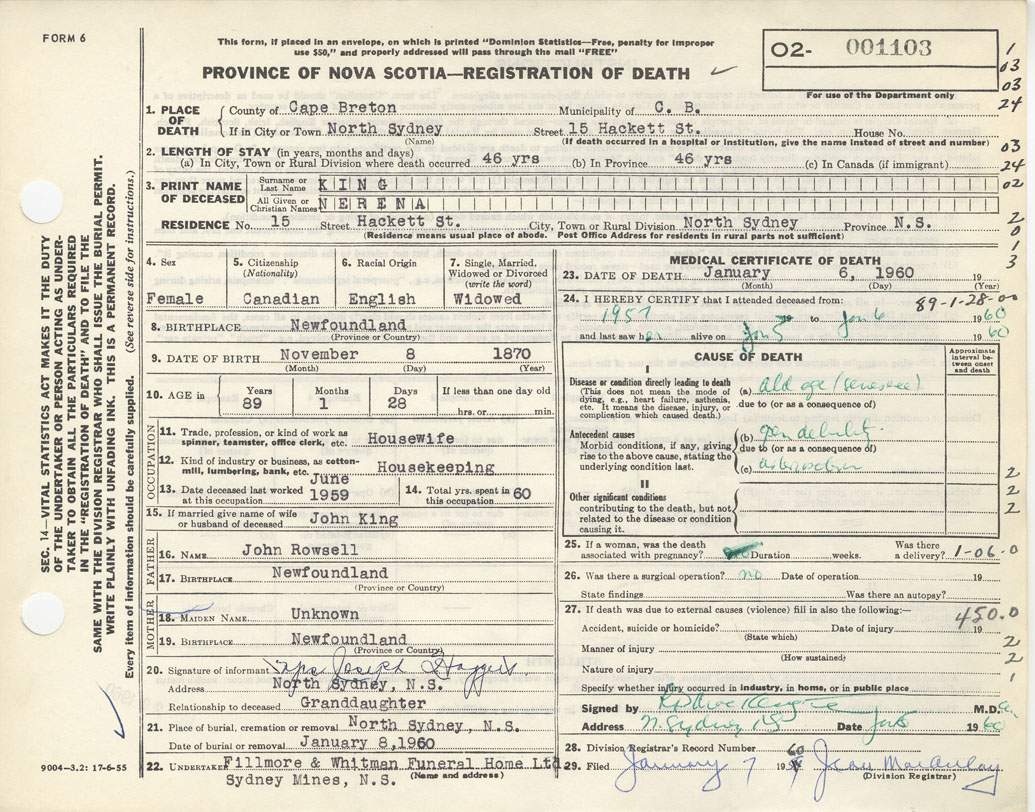 FORM 6
This form, if placed in an envelope, on which is printed "Dominion Statistics—Free, penalty for improper
use $50," and properly addressed will pass through the mail "FREE"
PROVINCE OF NOVA SCOTIA—REGISTRATION OF DEATH
O2- 001103
For use of the Department only
1
03
03
24
03
24
02
2
0
1
3
1. PLACE OF DEATH
County of Cape Breton Municipality of C. B.
If in City or Town North Sydney Street 15 Hackett St. House No.
(Name) (If death occurred in a hospital or institution, give the name instead of street and number)
2. LENGTH OF STAY (in years, months and days)
(a) In City, Town or Rural Division where death occurred 46 yrs (b) In Province 46 yrs (c) In Canada (if immigrant)
3. PRINT NAME OF DECEASED
Surname or Last Name KING
All Given or Christian Names NERENA
RESIDENCE No. 15 Street Hackett St. City, Town or Rural Division North Sydney Province N.S.
(Residence means usual place of abode. Post Office Address for residents in rural parts not sufficient)
4. Sex
Female
5. Citizenship
(Nationality)
Canadian
6. Racial Origin
English
7. Single, Married,
Widowed or Divorced
(write the word)
Widowed
8. BIRTHPLACE Newfoundland
(Province or Country)
9. DATE OF BIRTH November 8 1870
(Month) (Day) (Year)
10. AGE in
Years 89
Months 1
Days 28
If less than one day old
hrs. or min.
OCCUPATION
11. Trade, profession, or kind of work as
spinner, teamster, office clerk, etc. HouseWife
12. Kind of industry or business, as cotton-
mill, lumbering, bank, etc. Housekeeping
13. Date deceased last worked
at this occupation June 1959
14. Total yrs. spent in
this occupation 60
15. If married give name of wife
or husband of deceased John King
FATHER
16. NAME John Rowsell
17. BIRTHPLACE Newfoundland
(Province or Country)
MOTHER
18. MAIDEN NAME Unknown
19. BIRTHPLACE Newfoundland
(Province or Country)
20. Signature of informant Mrs Joseph
Address North Sydney, N.S.
Relationship to deceased Granddaughter
21. Place of burial, cremation or removal North Sydney, N.S.
Date of burial or removal January 8,1960
22. UNDERTAKER Fillmore & Whitman Funeral Home Ltd
Sydney Mines, N.S. (Name and address)
MEDICAL CERTIFICATE OF DEATH
23. DATE OF DEATH January 6, 1960 19
(Month) (Day) (Year)
24. I HEREBY CERTIFY that I attended deceased from:
89-1-28-00
1957 19 to Jan 6 1960
and last saw her alive on Jan 5 1960
CAUSE OF DEATH
Approximate
interval be-
tween onset
and death
I
Disease or condition directly leading to death
(This does not mean the mode of
dying, e.g., heart failure, asthenia,
etc. It means the disease, injury, or
complication which caused death.)
(a) old age
due to (or as a consequence of)
Antecedent causes
Morbid conditions, if any, giving
rise to the above cause, stating the
underlying condition last.
(b) gen debility
due to (or as a consequence of)
(c)
II
Other significant conditions
contributing to the death, but not
related to the disease or condition
causing it.
2
2
2
25. If a woman, was the death
associated with pregnancy? Duration weeks. Was there
a delivery?
1-06-0
26. Was there a surgical operation? no Date of operation 19
State findings Was there an autopsy?
27. If death was due to external causes (violence) fill in also the following:—
450.0
Accident, suicide or homicide? Date of injury 19
(State which)
Manner of injury
(How sustained)
Nature of injury
Specify whether injury occurred in industry, in home, or in public place
2
2
1
Signed by M.D.
Address N. Sydney NS Date Jan 6 1960
28. Division Registrar's Record Number
29. Filed January 7 1960 Jean MacAulay
(Division Registrar)
SEC. 14—VITAL STATISTICS ACT MAKES IT THE DUTY
OF THE UNDERTAKER OR PERSON ACTING AS UNDER-
TAKER TO OBTAIN ALL THE PARTICULARS REQUIRED
IN THE "REGISTRATION OF DEATH" AND TO FILE THE
SAME WITH THE DIVISION REGISTRAR WHO SHALL ISSUE THE BURIAL PERMIT.
WRITE PLAINLY WITH UNFADING INK. THIS IS A PERMANENT RECORD.
Every item of information should be carefully supplied. (See reverse side for instructions.)
9004—3.2: 17-6-55